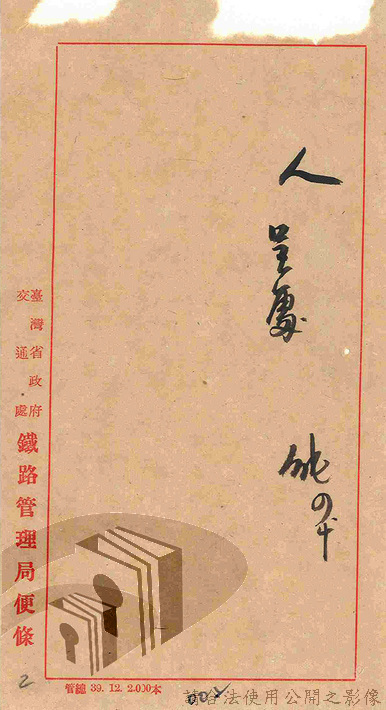 人呈處
臺灣省政府
交通處
鐵路管理局便條
管總 39. 12. 2.000本
2
請合法使用公開之影像